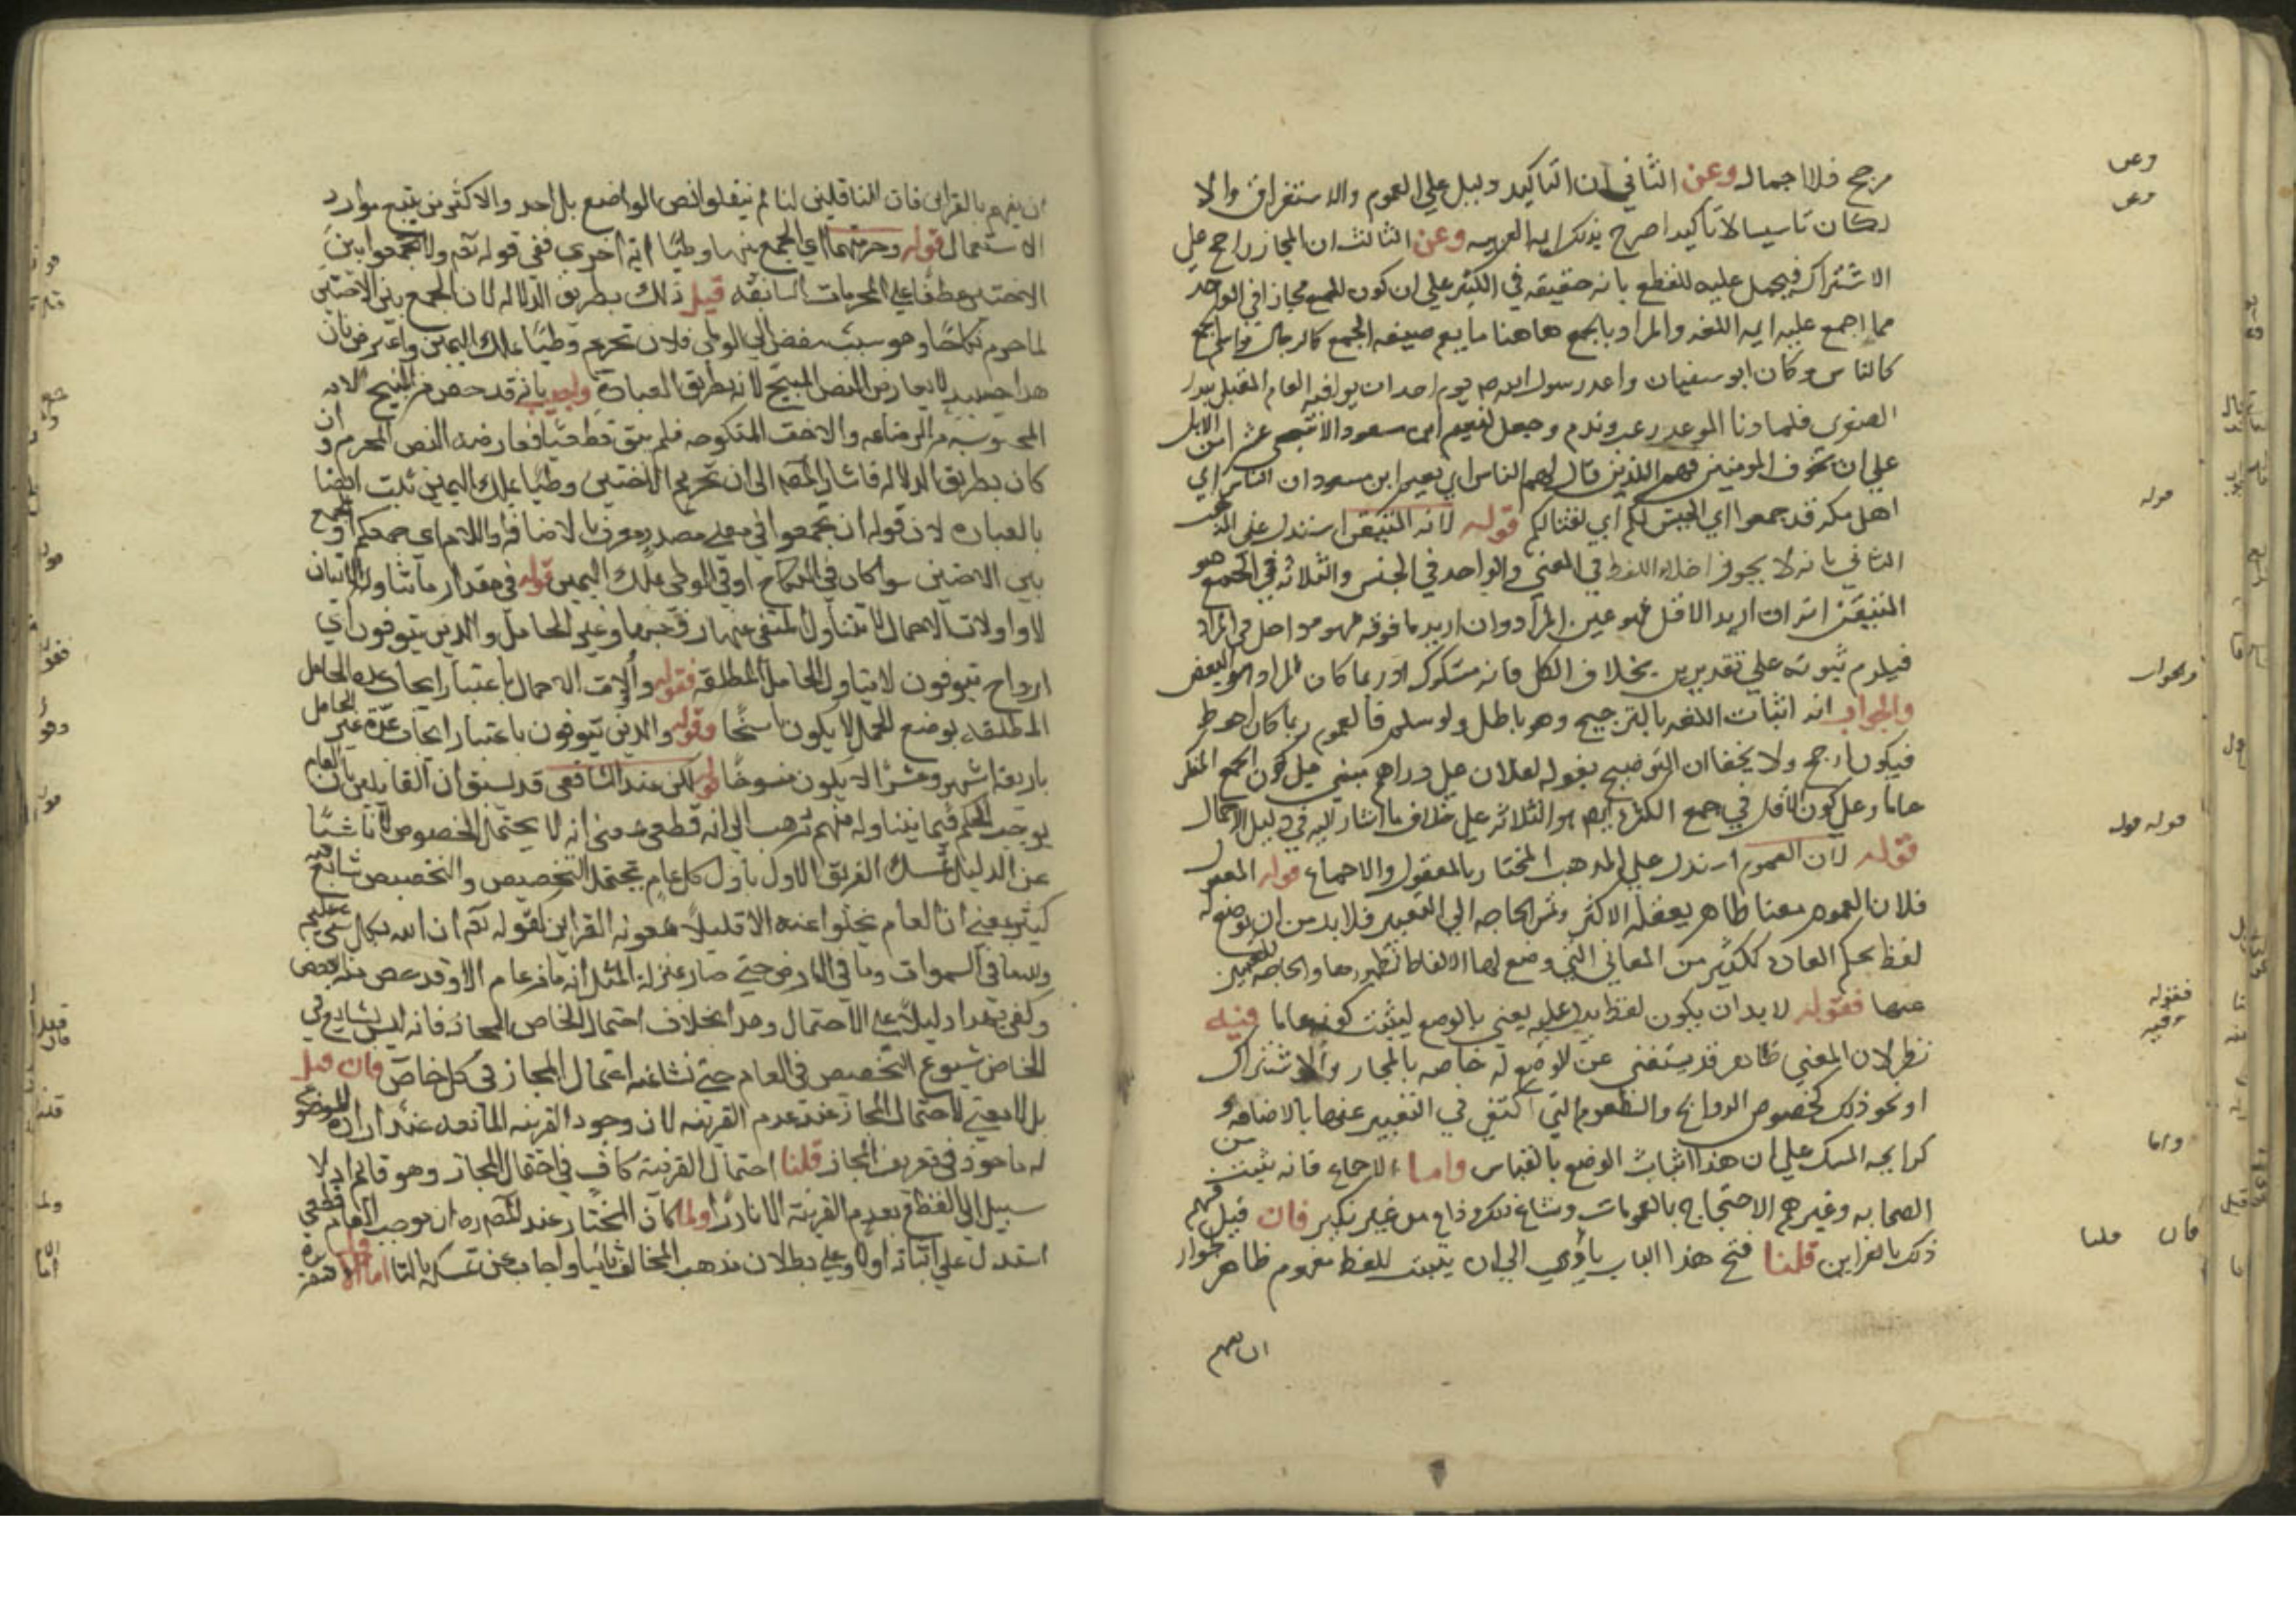 مرجح فلا اجمال وعن الثاني ان التاكيد دليل علي العموم والاستغراق والا
لكان تاسيسا لا تاكيدا صرح بذلك ايمه العربيه وعن الثالث ان المجاز راجح علي
الاشتراك فيحمل عليه للقطع بانه حقيقه في الكثير علي ان كون الجمع مجازا في الواحد
مما اجمع عليه ايمه اللغه والمراد بالجمع هاهنا ما يعم صيغه الجمع كالرجال واسم الجمع
كالناس وكان ابو سفيان واعد رسول الله صم يوم احد ان يوافيه العام المقبل ببدر
الصغري فلما دنا الموعد رعب وندم وجعل لنعيم ابن مسعود الاشجعي عشرا من الابل
علي ان يخوف المومنين فهم الذين قال لهم الناس اي نعيم ابن مسعود ان الناس اي
اهل مكه قد جمعوا اي الجيش لكم اي لقتالكم قوله لانه المتيقن استدل علي المذهب
الثاني بانه لا يجوز اخلاء اللفظ في المعني والواحد في الجنس والثلاثه في الجمع هو
المتيقن انه ان اريد الاقل فهو عين المراد وان اريد ما فوقه فهو داخل في المراد
فيلزم ثبوته علي تقديرين بخلاف الكل فانه مشكوك اذ ربما كان المراد هو البعض
والجواب انه اثبات اللغه بالترجيح وهو باطل ولو سلم فالعموم ربما كان احوط
فيكون ارجح ولا يخفا ان التوضيح بقوله لفلان علي دراهم مبني علي كون الجمع المنكر
عاما وعلي كون الاقل في جمع الكثره ايضا هو الثلاثه علي خلاف ما اشار اليه في دليل الاجمال
قوله لان العموم استدل علي المذهب المختار بالمعقول والاجماع قوله المعقول
فلان العموم معنا ظاهر يعقله الاكثر وتمس الحاجه الي التعبير فلا بد من ان يوضع له
لفظ بحكم العاده ككثير من المعاني التي وضع لها الالفاظ لظهورها والحاجه للتعبير
عنها فقوله لا بد ان يكون لفظ يدل عليه يعني بالوضع ليثبت كونه عاما فيه
نظر لان المعني ظاهر قد يستغني عن الوضع له خاصه بالمجاز والاشتراك
او نحو ذلك كخصوص الروايح والطعوم التي اكتفي في التعبير عنها بالاضافه
كرايحه المسك علي ان هذا اثبات الوضع بالقياس واما الاجماع فانه ثبت من
الصحابه وغيرهم الاحتجاج بالعمومات وشاع ذلك وذاع من غير نكير فان قيل فهم
ذلك بالقراين قلنا فتح هذا الباب يؤدي الي ان يثبت للفظ مفهوم ظاهر لجواز
ان يفهم
ان يفهم بالقراين فان الناقلين لنا لم ينقلوا نص الواضع بل اخذوا الاكثر من تتبع موارد
الاستعمال قوله وحرمتهما اي الجمع بينهما وطئا ايه اخري ففي قوله تعم ولا تجمعوا بين
الاختين عطفا علي المحرمات السابقه قيل ذلك بطريق الدلاله لان الجمع بين الاختين
لما حرم نكاحا وهو سبب مفض الي الوطي فلان تحريم وطئا بملك اليمين واعترض بان
هذا حينئذ لا يعارض النص المبيح لانه بطريق العباره واجيب بانه قد خص من المبيح الامه
المجوسيه من الرضاعه والاخت المنكوحه فلم يبق قطعيا فعارضه النص المحرم وان
كان بطريق الدلاله فاشار المص الي ان تحريم الاختين وطئا بملك اليمين ثابت ايضا
بالعباره لان قوله ان تجمعوا في معني مصدر معرف بالاضافه واللام اي جمعكم او الجمع
بين الاختين سوا كان في النكاح او في الوطي بملك اليمين قوله في مقدار ما تناوله الايتان
لا واولات الاحمال لا يتناول المتوفي عنها زوجها وعلي الحامل والذين يتوفون اي
ازواج يتوفون لا يتناول الحامل المطلقه فقوله واولات الاحمال باعتبار ايجاب عده الحامل
المطلقه بوضع الحمل لا يكون ناسخا وقوله والذين يتوفون باعتبار ايجاب عده غير الحامل
باربعه اشهر وعشرا لا يكون منسوخا قوله لكن عند الشافعي قد سبق ان القايلين بان العام
يوجب الحكم فيما يتناوله منهم ذهب الي انه قطعي بمعني انه لا يحتمل الخصوص ناشئا
عن الدليل تمسك الفريق الاول باول كل عام يحتمل التخصيص والتخصيص شايع فيه
كثير بمعني ان العام يخلوا عنه الا قليلا بمعونه القراين لقوله تعم ان الله بكل شي عليم
ولله ما في السموات وما في الارض حتي صار بمنزله المثل انه ما من عام الا وقد خص منه البعض
وكفي بهذا دليلا علي الاحتمال وهذا بخلاف احتمال الخاص المجاز فانه ليس بشايع في
الخاص شيوع التخصيص في العام حتي نشا عنه احتمال المجاز في كل خاص فان قيل
بل لا معني لاحتمال المجاز عند عدم القرينه لان وجود القرينه المانعه عند اراده الموضوع
له ماخوذ في تعريف المجاز قلنا احتمال القرينه كاف في احتمال المجاز وهو قايم اذ لا
سبيل الي القطع بعدم القرينه الا نادرا ولما كان المختار عند المص ره ان موجب العام قطعي
استدل علي اثباته اولا وعلي بطلان مذهب المخالف ثانيا واجاب عن تمسكه ثالثا اما الاول